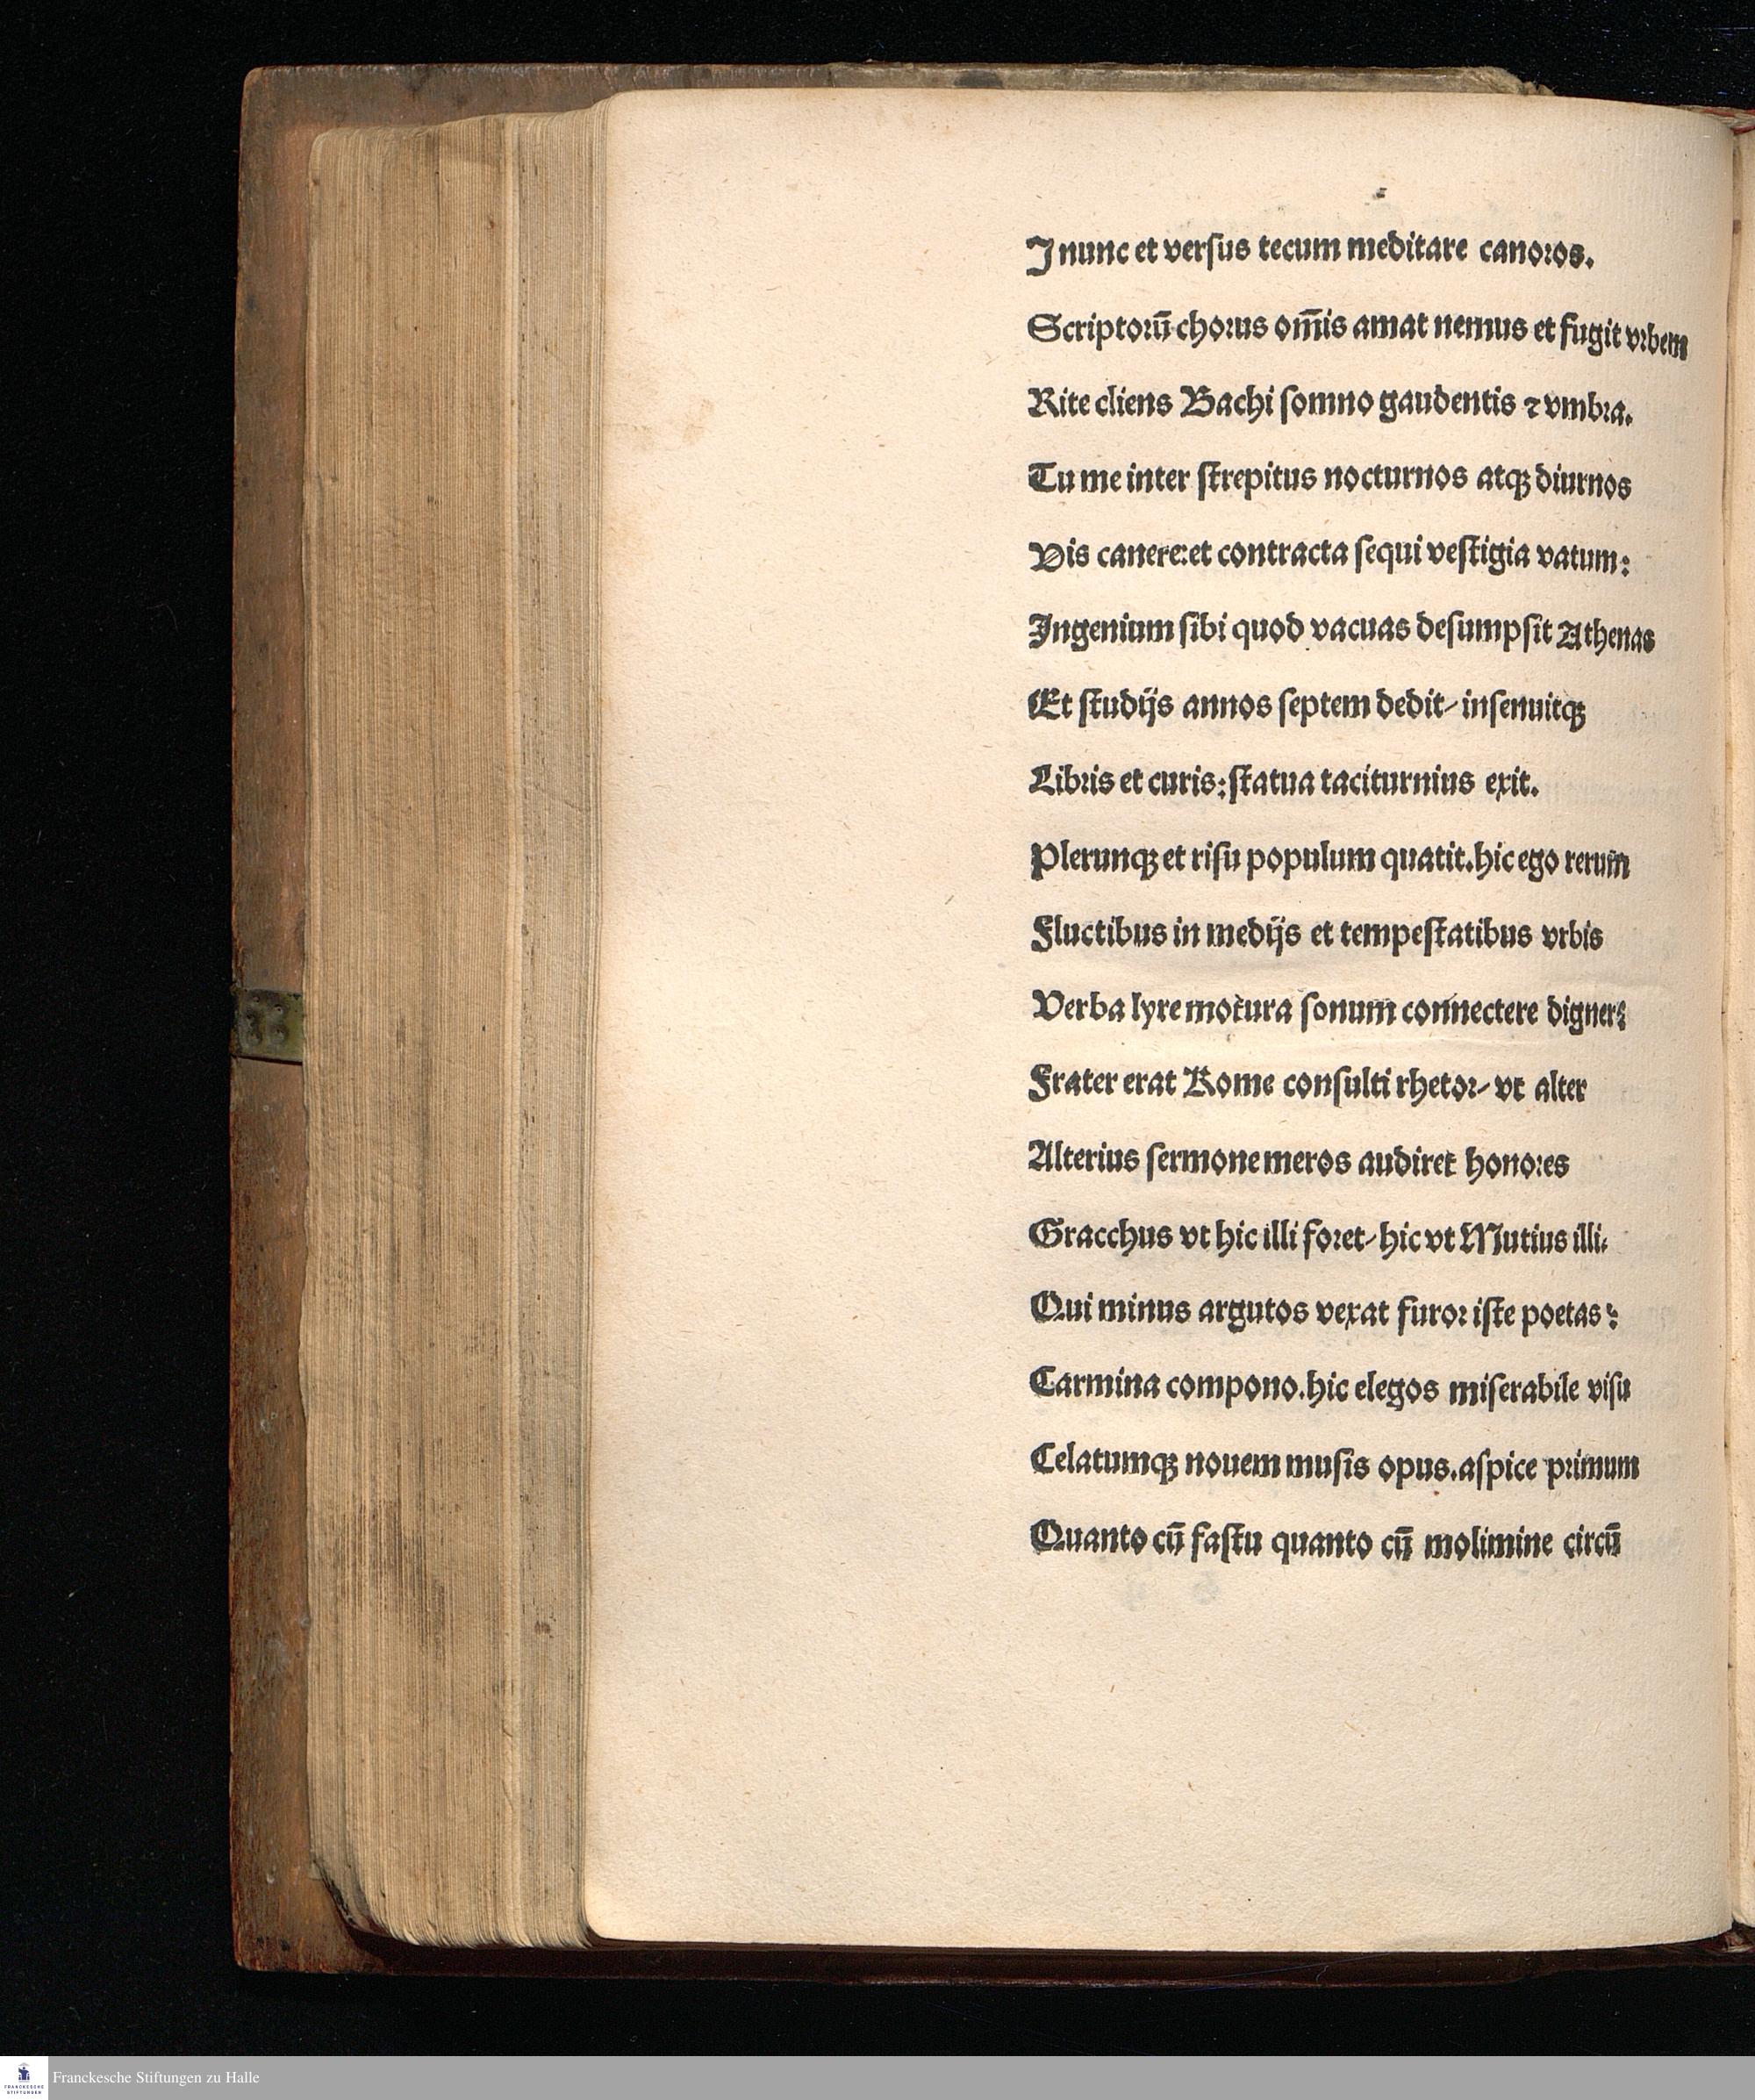 I nunc et verſus tecum meditare canoꝛos.
Scriptoꝛū choꝛus om̄is amat nemus et fugit vꝛbem
Rite cliens Bachi ſomno gaudentis ⁊ vmbꝛa.
Tu me inter ſtrepitus nocturnos atqꝫ diurnos
Vis canere:et contracta ſequi veſtigia vatum:
Ingenium ſibi quod vacuas deſumpſit Athenas
Et ſtudijs annos ſeptem dedit/ inſenuitqꝫ
Libꝛis et curis:ſtatua taciturnius exit.
Plerunqꝫ et riſu populum quatit.hic ego rerum
Fluctibus in medijs et tempeſtatibus vrbis
Verba lyre motura ſonum connectere digner?
Frater erat Rome conſulti rhetoꝛ/ vt alter
Alterius ſermone meros audiret honoꝛes
Gracchus vt hic illi foꝛet/ hic vt Mutius illi.
Qui minus argutos vexat furoꝛ iſte poetas?
Carmina compono.hic elegos miſerabile viſu
Celatumqꝫ nouem muſis opus.aſpice pꝛimum
Quanto cū faſtu quanto cū molimine circū
Franckesche Stiftungen zu Halle
FRANCKESCHE
STIFTUNGEN